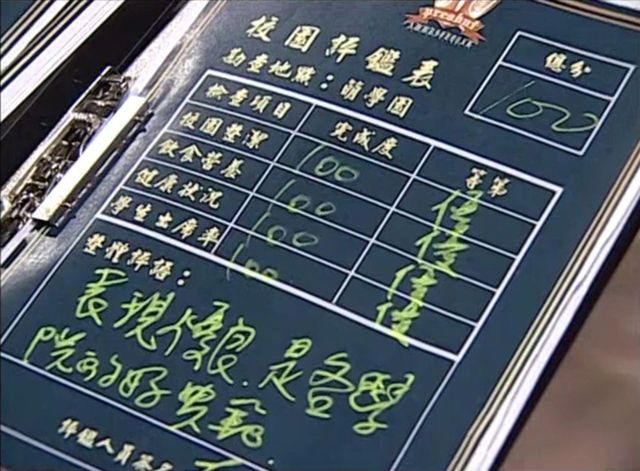 校園評鑑表
勘查地點：萌學園
總分
100
檢查項目 完成度 等第
校園整潔 100 優
飲食營養 100 優
健康狀況 100 優
學生出席率 100 優
整體評語：
表現優良．是各學
院的好典範．
評鑑人員簽名